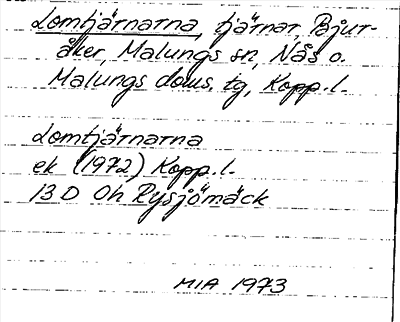 Lomtjärnarna, tjärnar, Bjur-
åker, Malungs sn, Nås o.
Malungs doms. tg, Kopp. l.
Lomtjärnarna
ek (1972) Kopp. l.
13 D Oh Rysjömäck
MIA 1973